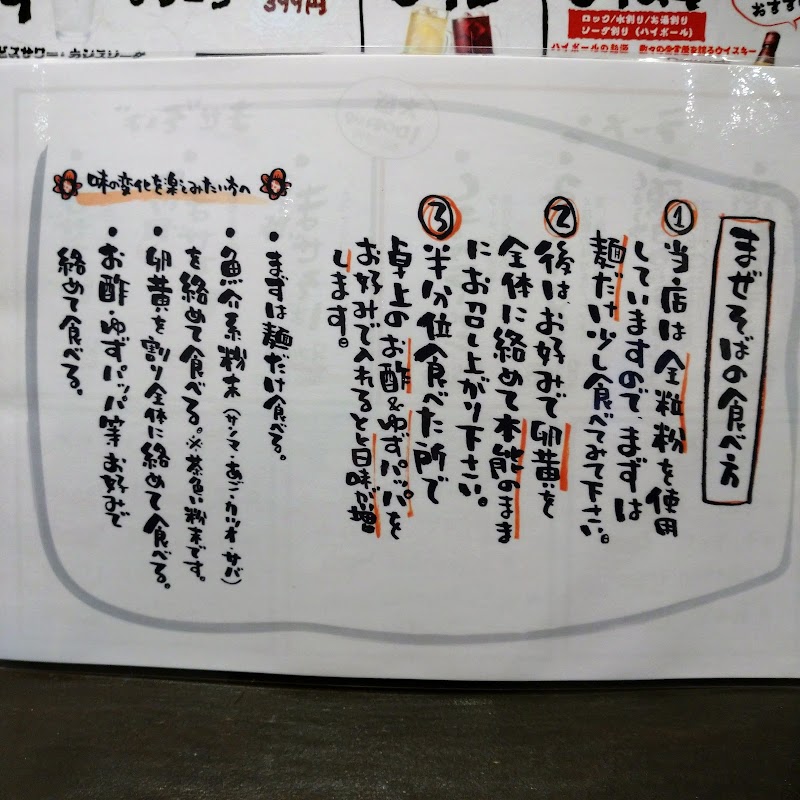 399円
ロック/水割り/お湯割り
ソーダ割り(ハイボール)
まぜそばの食べ方
①当店は全粒粉を使用
していますので、まずは
麺だけ少し食べてみて下さい。
②後は、お好みで卵黄を
全体に絡めて本能のまま
にお召し上がり下さい。
③半分位食べた所で
卓上のお酢&ゆずパッパを
お好みで入れると旨味が増
します。
味の変化を楽しみたい方へ
・まずは麺だけ食べる。
・魚介系粉末(サンマ・あご・カツオ・サバ)
を絡めて食べる。※茶色い粉末です。
・卵黄を割り全体に絡めて食べる。
・お酢・ゆずパッパ等お好みで
絡めて食べる。